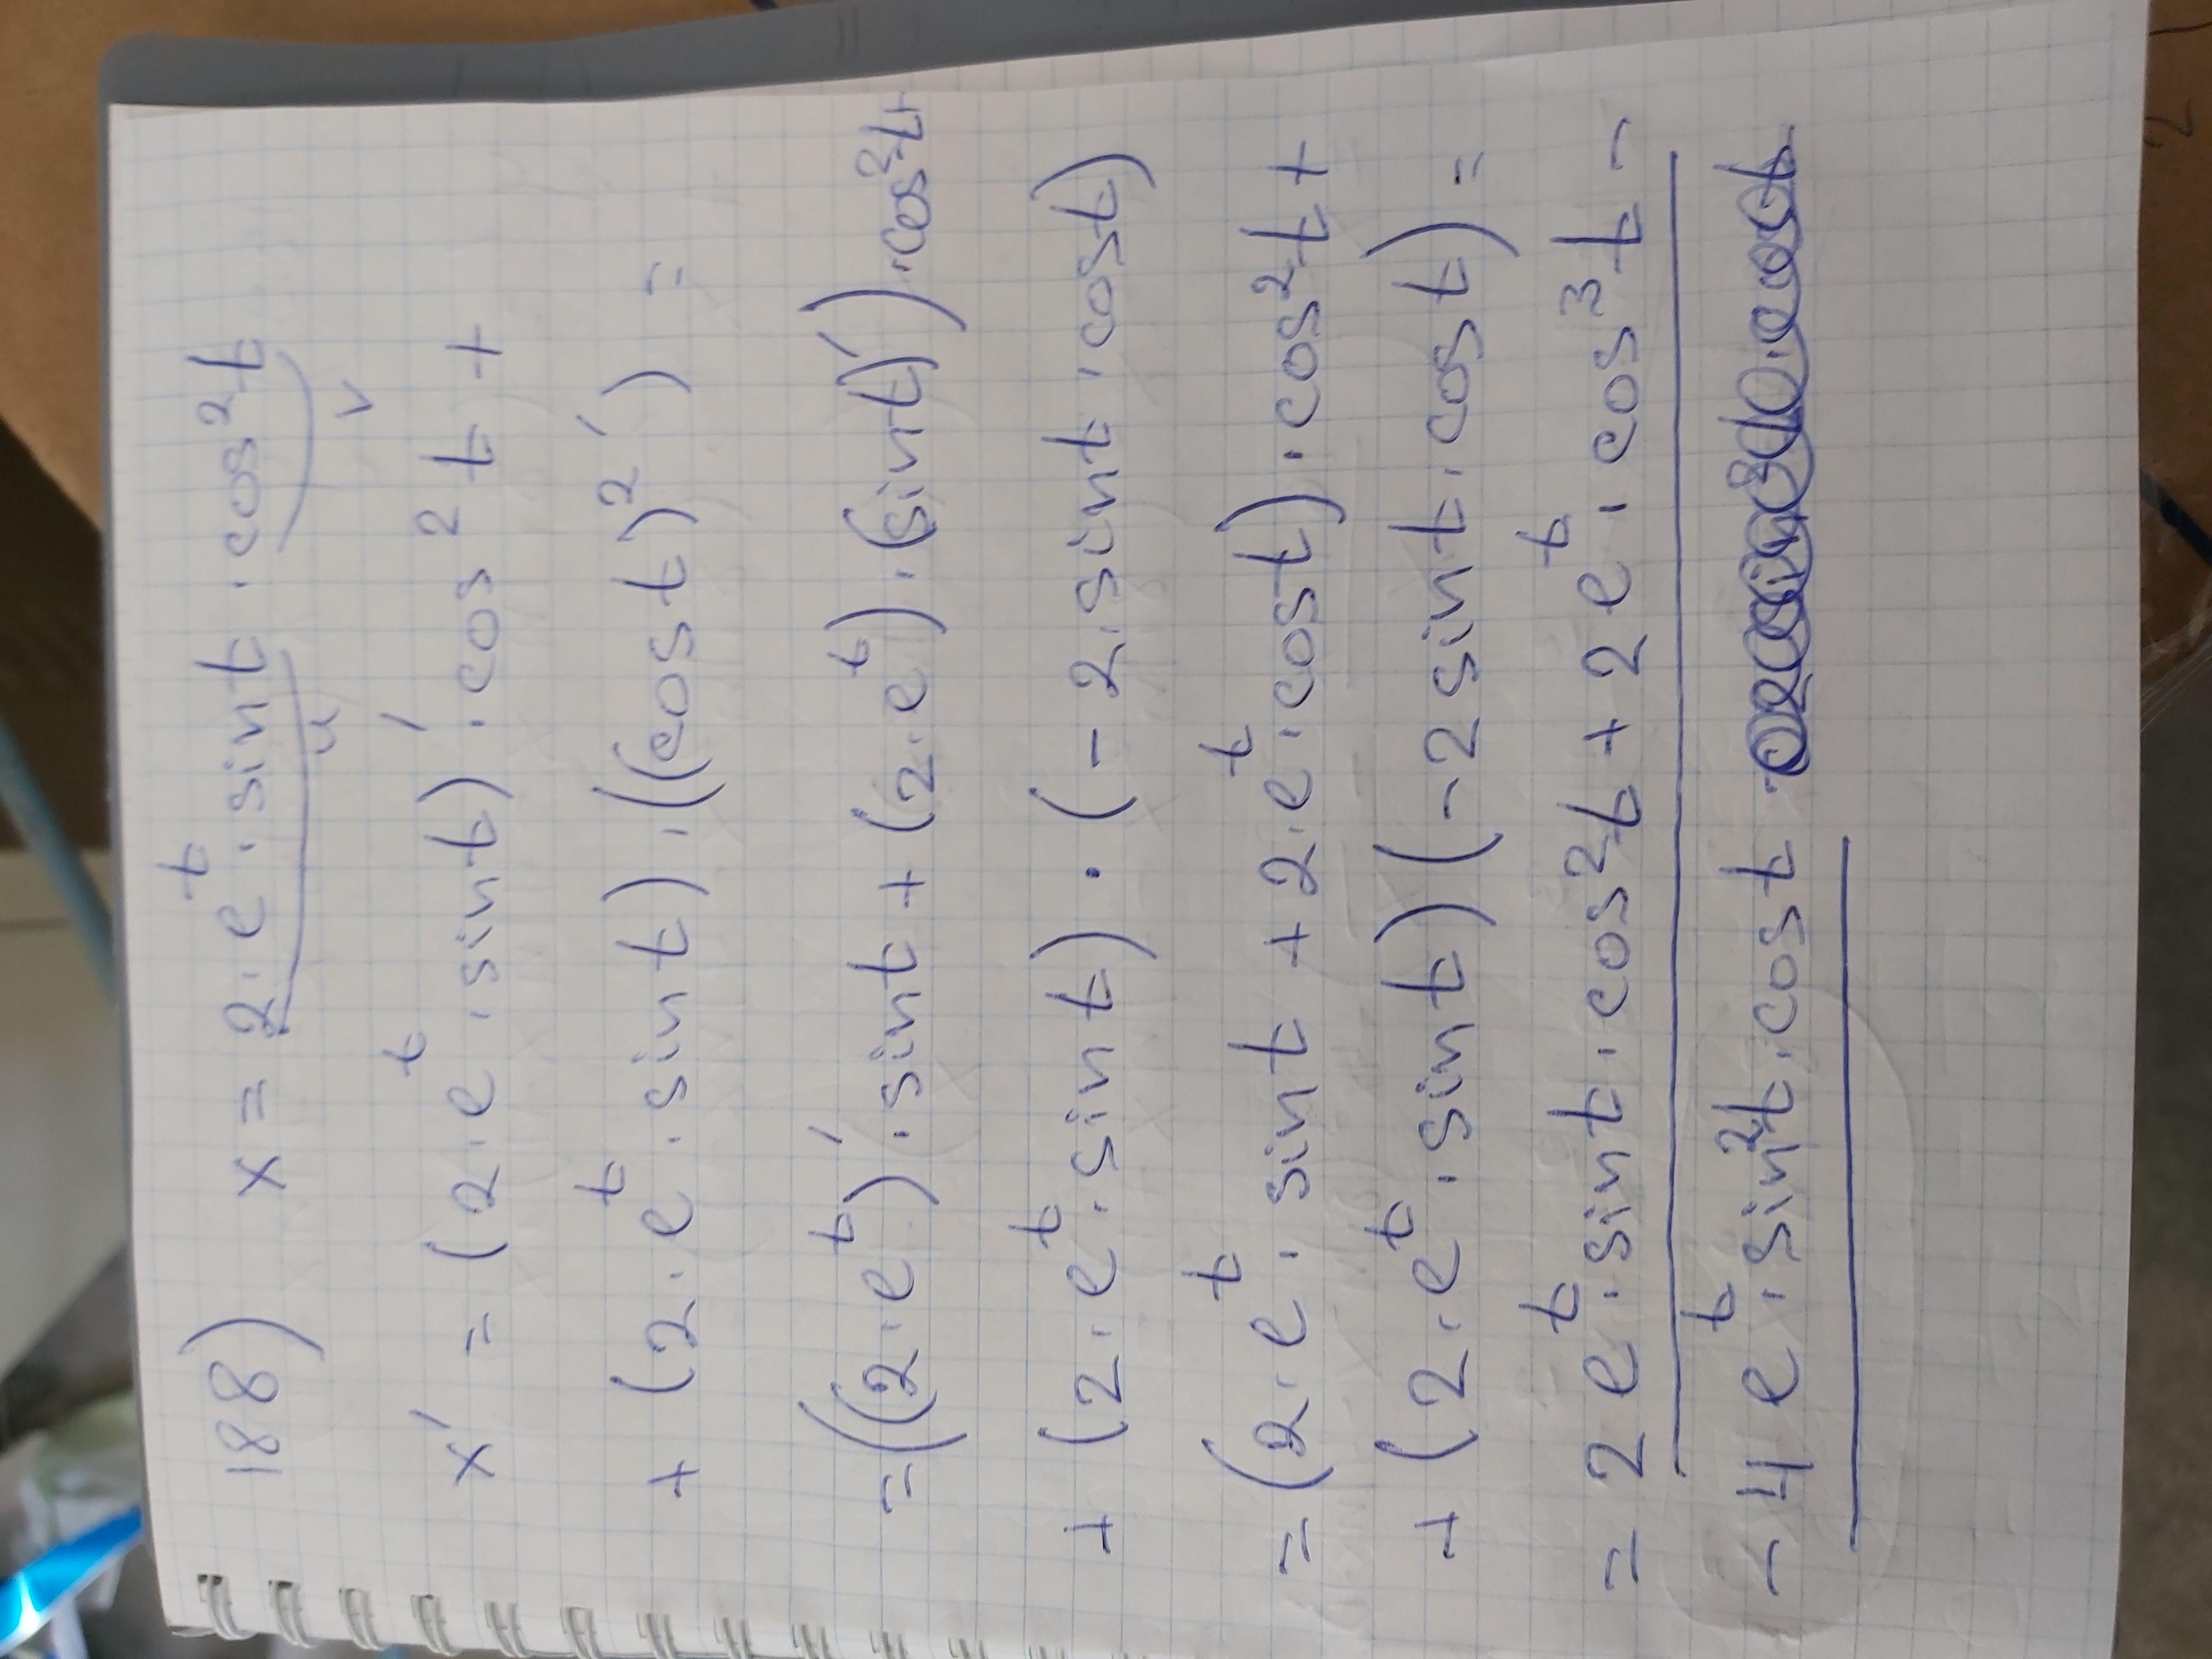 188) x = 2·e^t·sint·cos²t
u v
x' = (2·e^t·sint)'·cos²t +
+ (2·e^t·sint)·((cost)²') =
= ((2·e^t)'·sint + (2·e^t)·(sint)')·cos²t+
+ (2·e^t·sint)·(-2·sint·cost)
= (2·e^t·sint + 2·e^t·cost)·cos²t +
+ (2·e^t·sint)(-2sint·cost) =
= 2e^t·sint·cos²t + 2e^t·cos³t -
- 4e^t·sin²t·cost